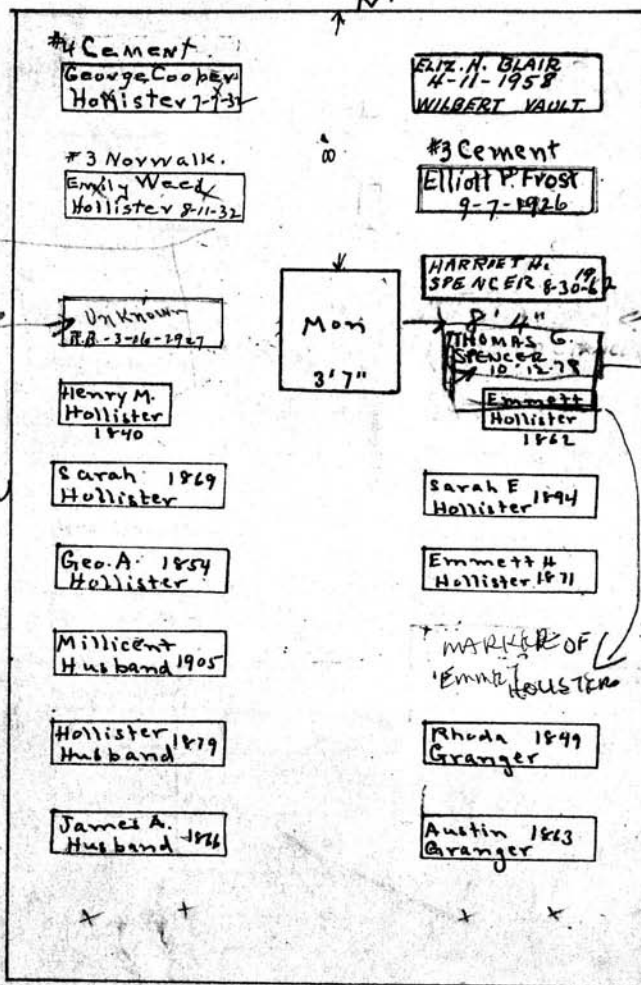 N.
#4 Cement
George Cooper
Hollister 7-9-32
#3 Norwalk.
Emily Weed
Hollister 8-11-32
Unknown
R.B-3-16-1927
Henry M.
Hollister
1840
Sarah 1869
Hollister
Geo. A. 1854
Hollister
Millicent
Husband 1905
Hollister 1879
Husband
James A. 1866
Husband
8
Mon
3'7"
ELIZ. H. BLAIR
4-11-1958
WILBERT VAULT
#3 Cement
Elliott P. Frost
9-7-1926
HARRIET H. 19
SPENCER 8-30-62
8' 4"
THOMAS G.
SPENCER
10-12-78
Emmett
Hollister
1862
Sarah E 1894
Hollister
Emmett H
Hollister 1871
MARKER OF
EMMETT
HOLLISTER
Rhoda 1849
Granger
Austin 1863
Granger